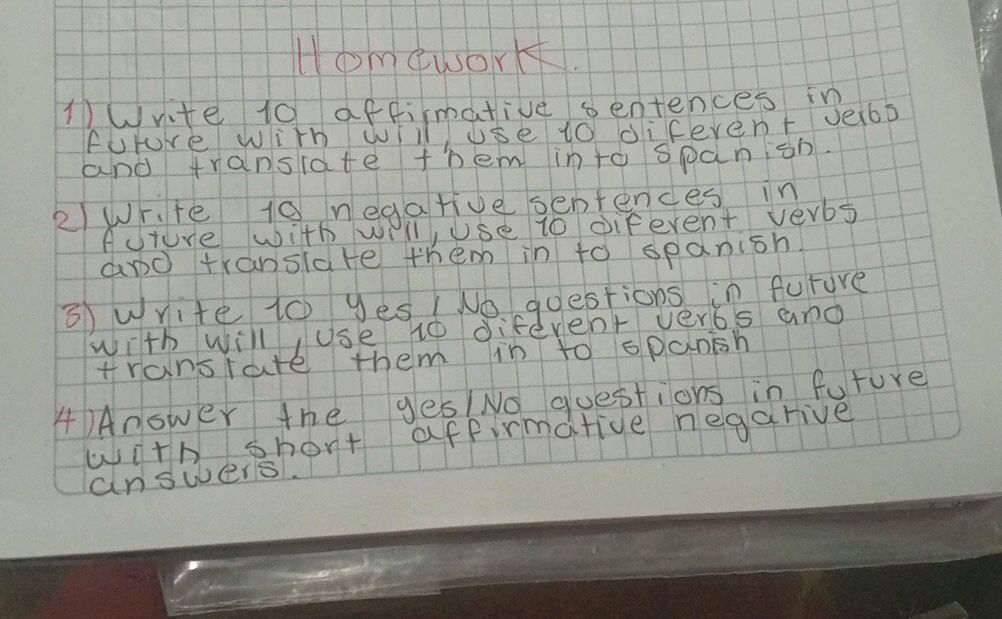 Homework.
1) Write 10 affirmative sentences in
future with will, use 10 diferent verbs
and translate them in to spanish.
2) Write 10 negative sentences in
future with will, use 10 diferent verbs
and translate them in to spanish.
3) Write 10 yes/No questions in future
with will, use 10 diferent verbs and
translate them in to spanish
4) Answer the yes/No questions in future
with short affirmative negative
answers.